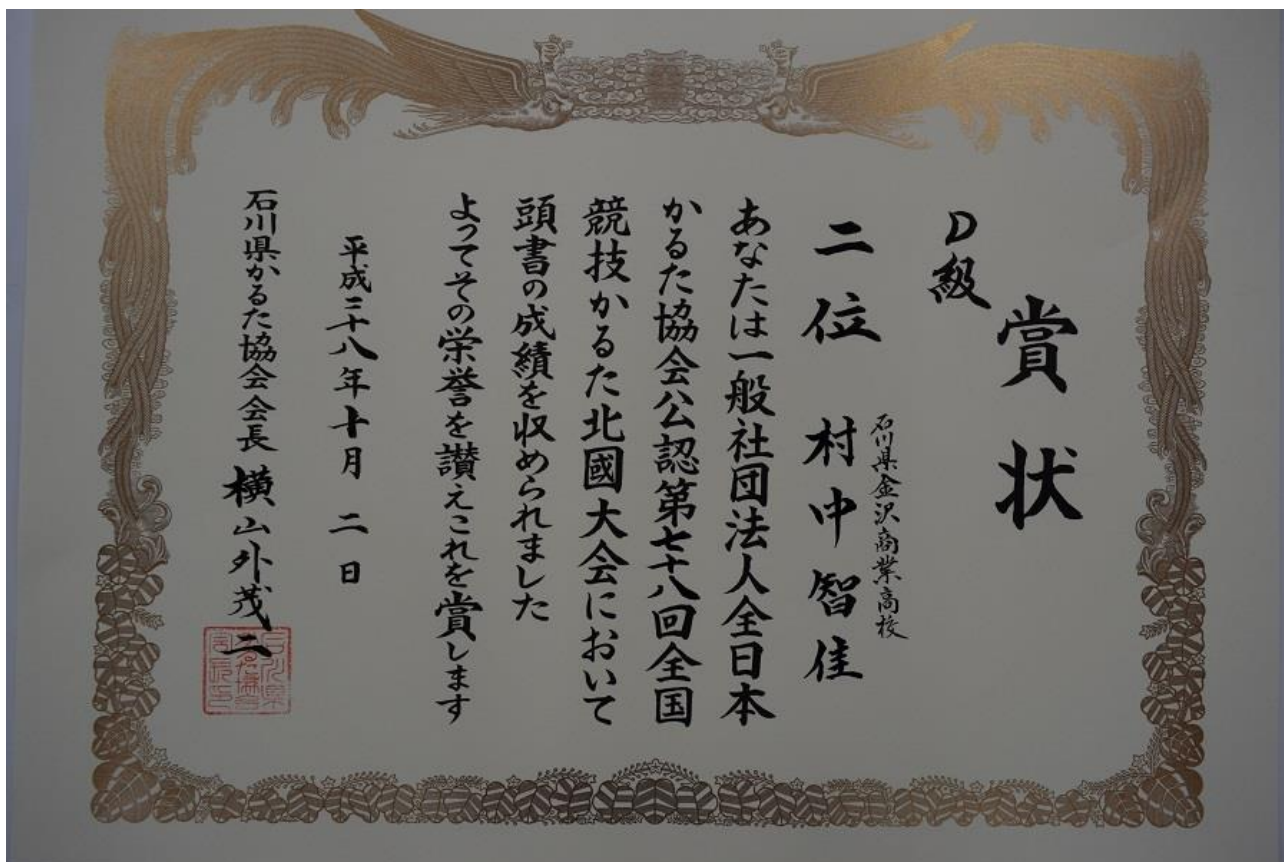 賞状
D級
石川県金沢商業高校
二位 村中智佳
あなたは一般社団法人全日本
かるた協会公認第七十八回全国
競技かるた北國大会において
頭書の成績を収められました
よってその栄誉を讃えこれを賞します
平成二十八年十月二日
石川県かるた協会会長 横山外茂二